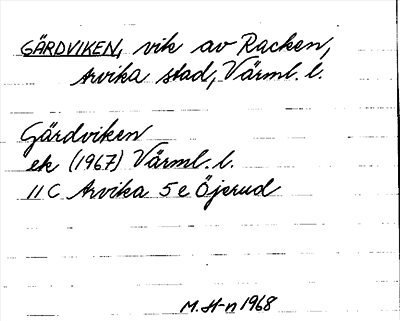 GÄRDVIKEN, vik av Racken,
Arvika stad, Värml. l.
Gärdviken
ek (1967) Värml. l.
11 C Arvika 5 e Öjerud
M. H-n 1968